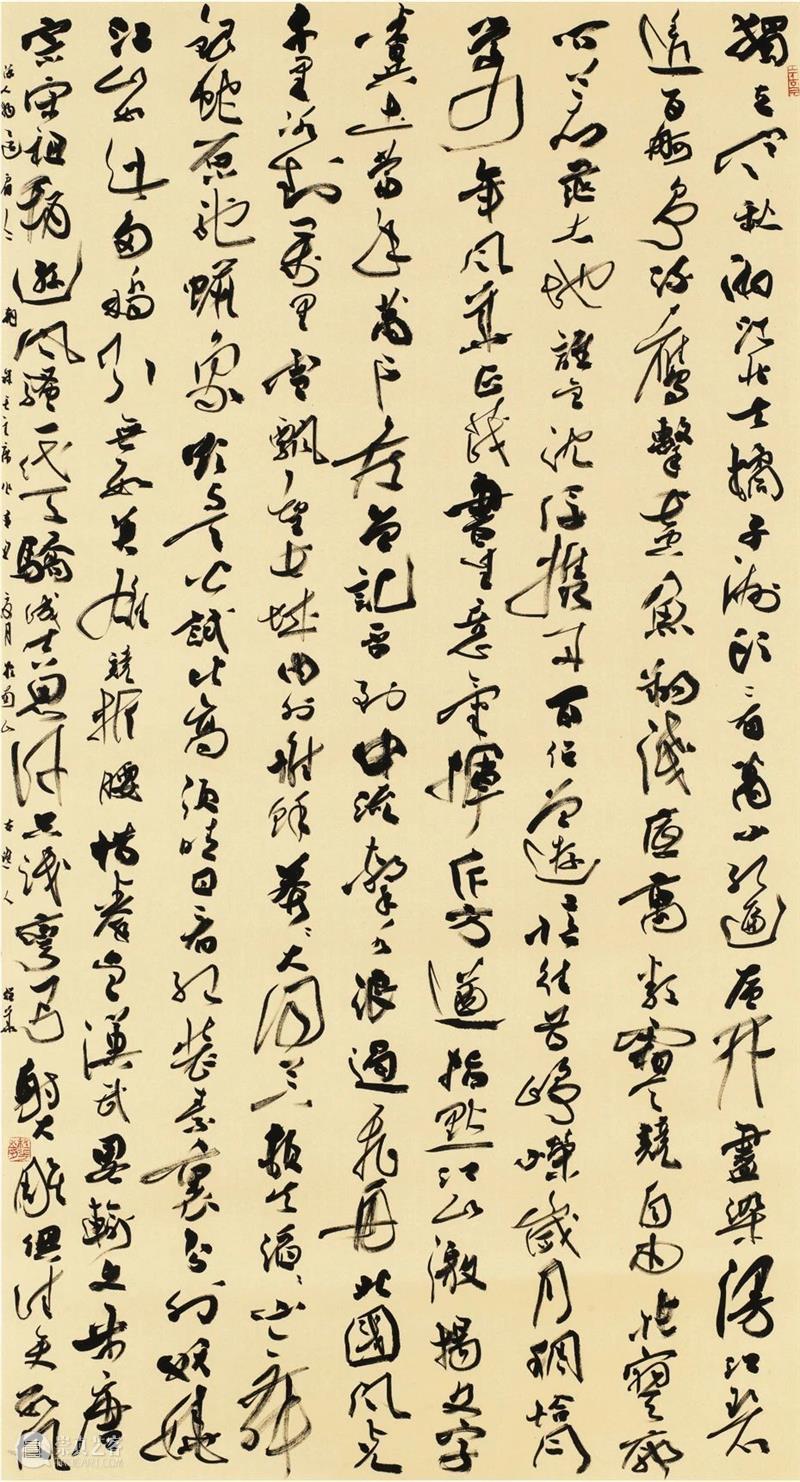 獨立寒秋湘江北去橘子洲頭看萬山紅遍層林盡染漫江碧
透百舸爭流鷹擊長空魚翔淺底萬類霜天競自由悵寥廓
問蒼茫大地誰主沉浮攜來百侶曾遊憶往昔崢嶸歲月稠恰同
學少年風華正茂書生意氣揮斥方遒指點江山激揚文字
糞土當年萬戶侯曾記否到中流擊水浪遏飛舟北國風光
千里冰封萬里雪飄望長城內外惟餘莽莽大河上下頓失滔滔山舞
銀蛇原馳蠟象欲與天公試比高須晴日看紅裝素裹分外妖嬈
江山如此多嬌引無數英雄競折腰惜秦皇漢武略輸文采唐
宗宋祖稍遜風騷一代天驕成吉思汗只識彎弓射大雕俱往矣數風
流人物還看今朝錄毛主席
崇真艺客